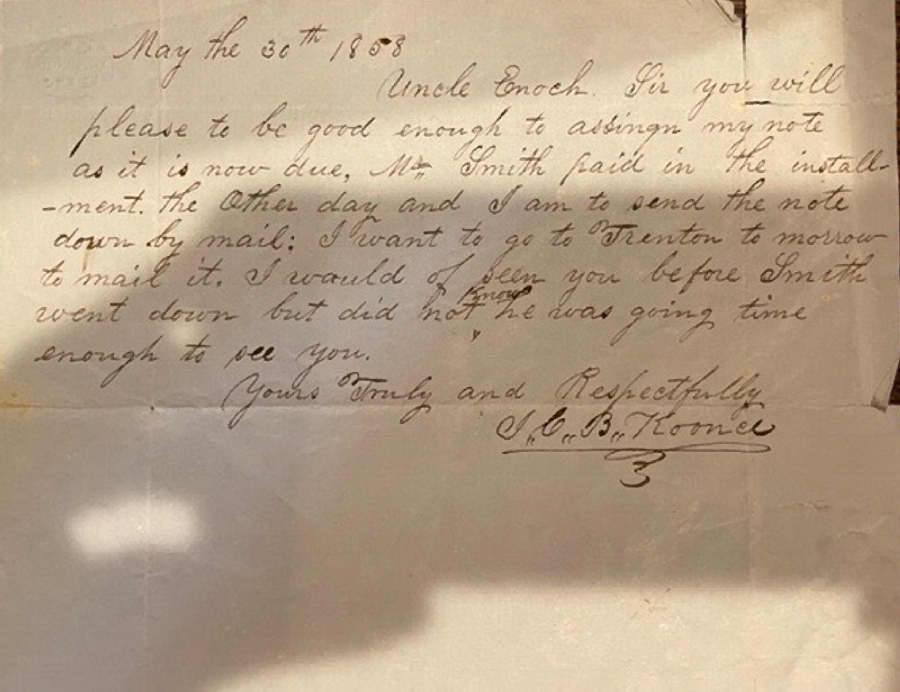 May the 30th 1858
Uncle Enoch. Sir you will
please to be good enough to assingn my note
as it is now due, Mr Smith paid in the install-
-ment. the Other day and I am to send the note
down by mail: I want to go to Trenton to morrow
to mail it. I would of seen you before Smith
went down but did not Know he was going time
enough to see you.
Yours Truly and Respectfully
I,, C,, B,, Koonce